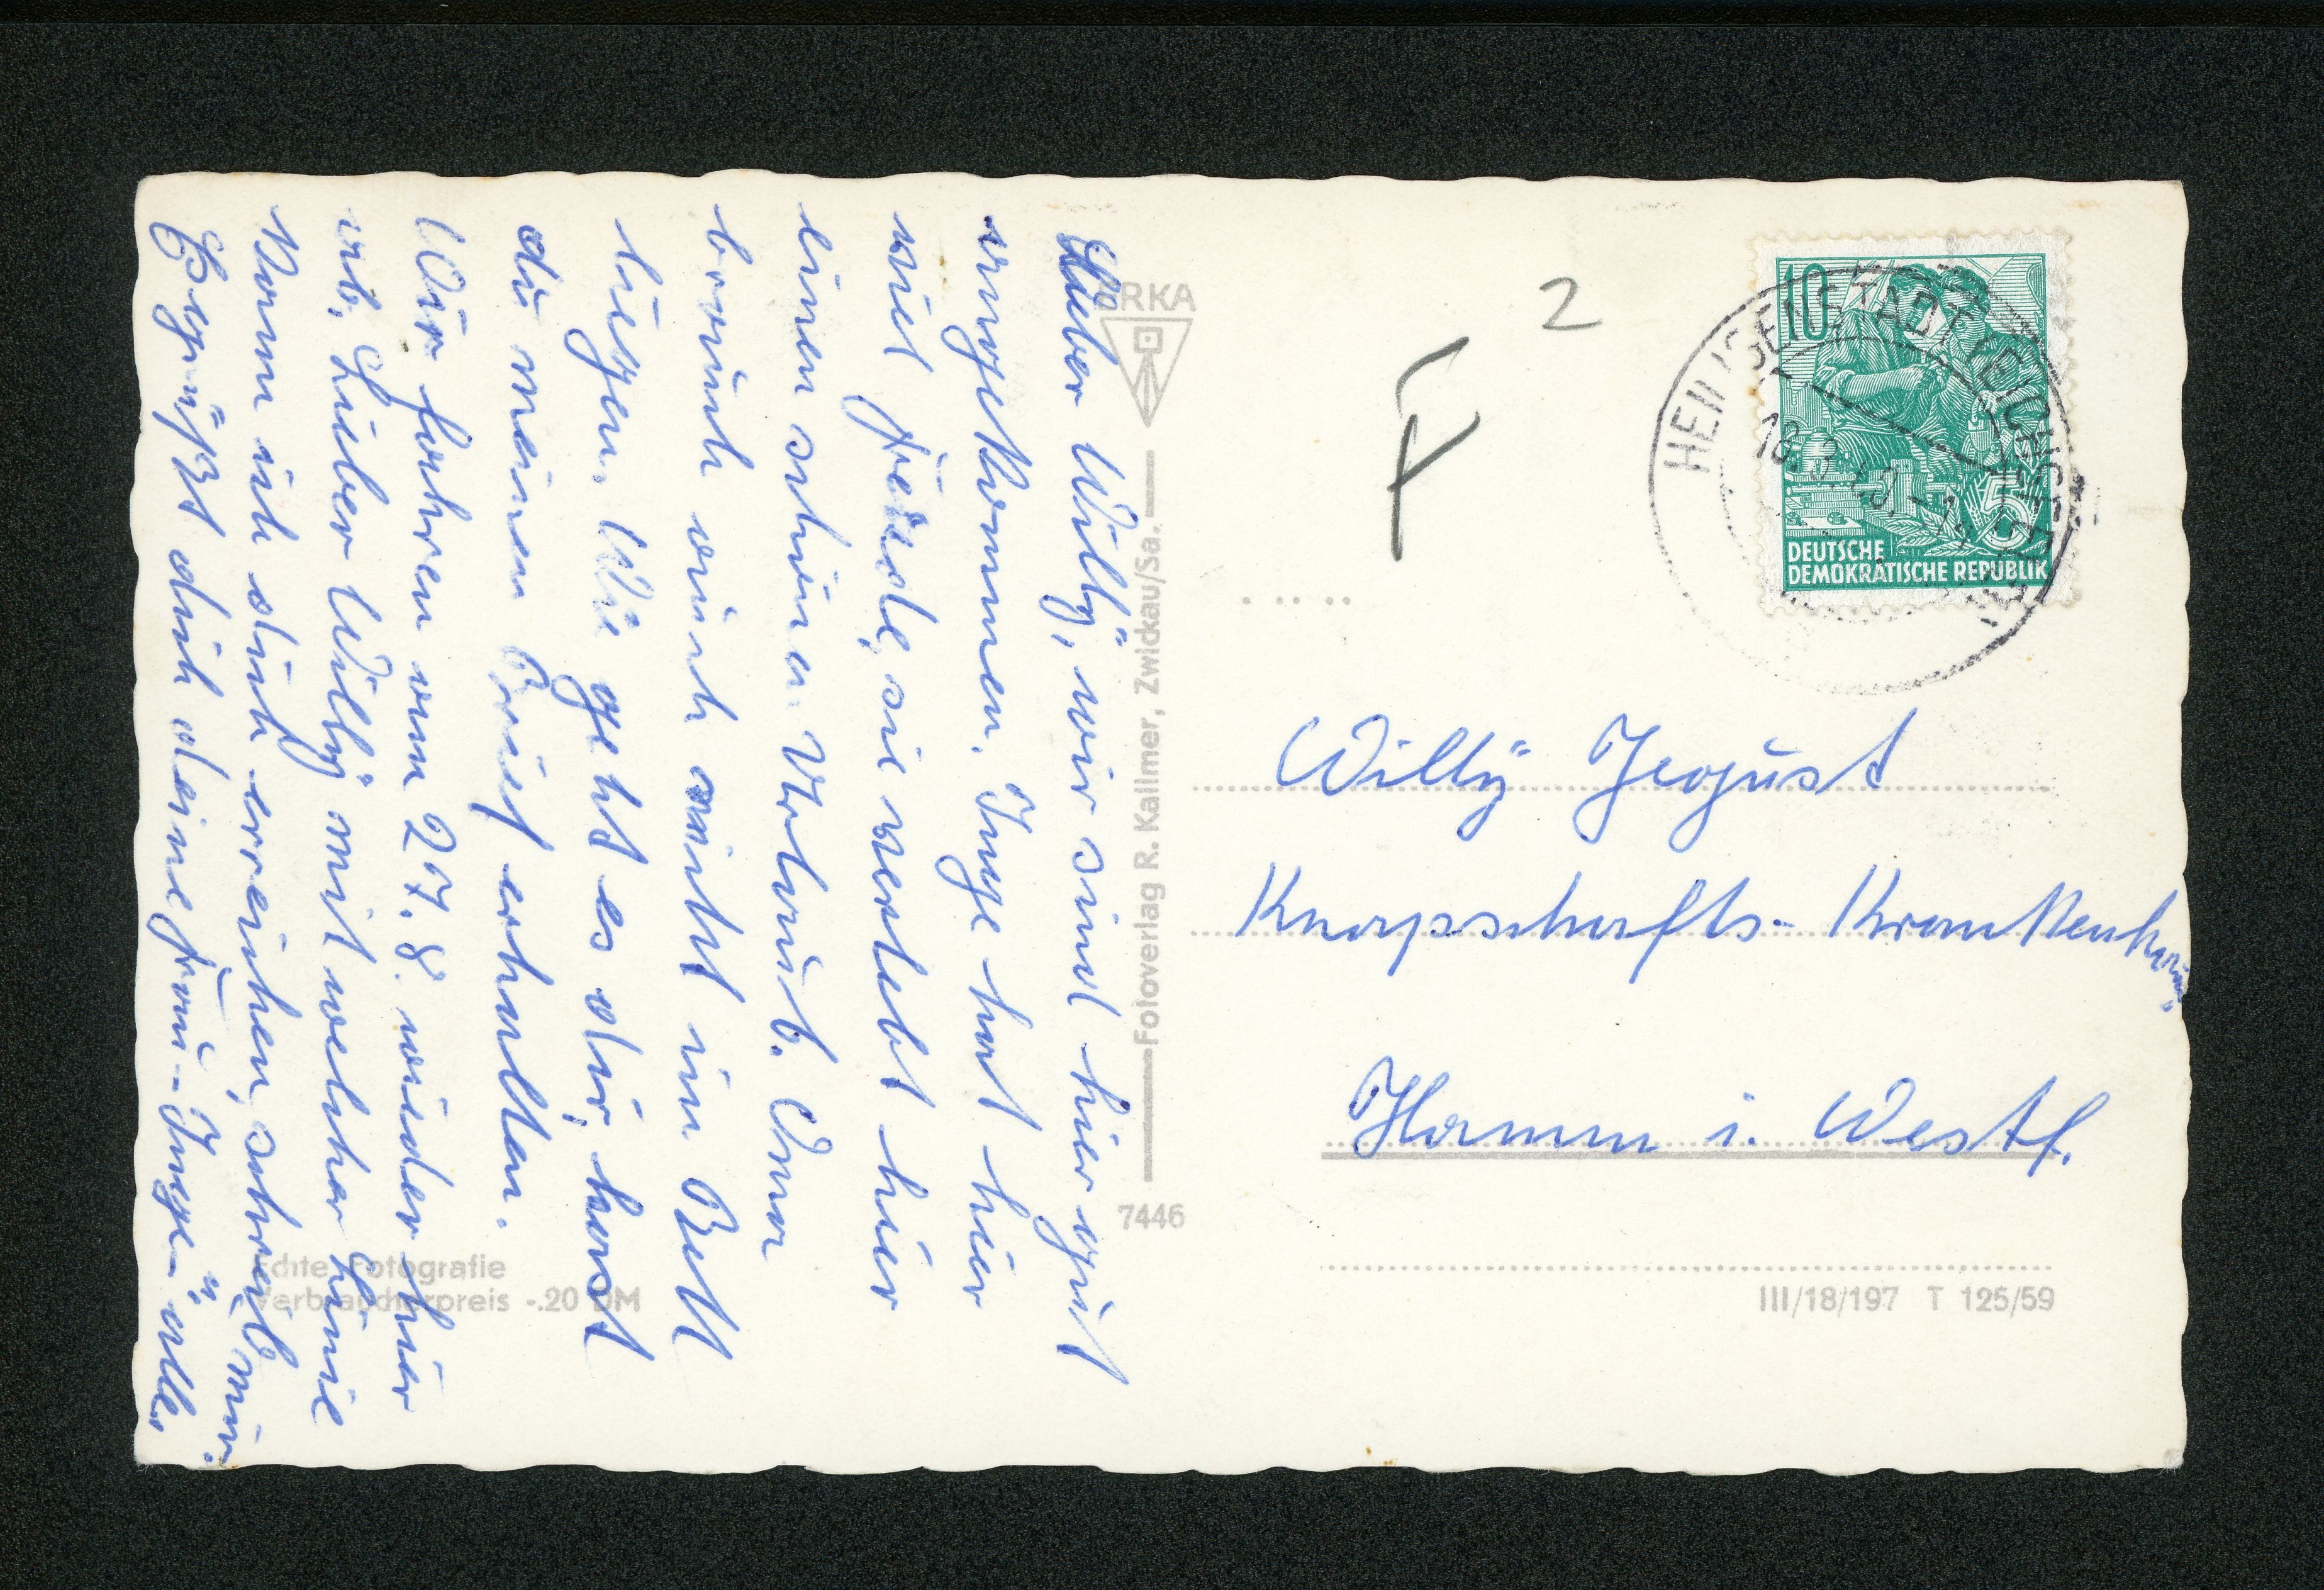 Lieber Willÿ, wir sind hier gut
angekommen. Inge hat hier
viel Freude, sie verlebt hier
einen schönen Urlaub. Oma
brauch auch nicht im Bett
liegen. Wie geht es dir, hast
du meinen Brief erhalten.
Wir fahren am 27.8. wieder hier
ab. Lieber Willÿ mit welcher Linie
kann ich dich erreichen, schreib mir.
Es grüßt dich deine Frau - Inge u. alle.
ARKA
Fotoverlag R. Kallmer, Zwickau/Sa.
7446
Echte Fotografie
Verbraucherpreis -.20 DM
F 2
10
5
DEUTSCHE
DEMOKRATISCHE REPUBLIK
HEILIGENSTADT (EICHSFELD)
Willÿ Jegust
Knapschafts-Krankenhaus
Hamm i. Westf.
III/18/197 T 125/59